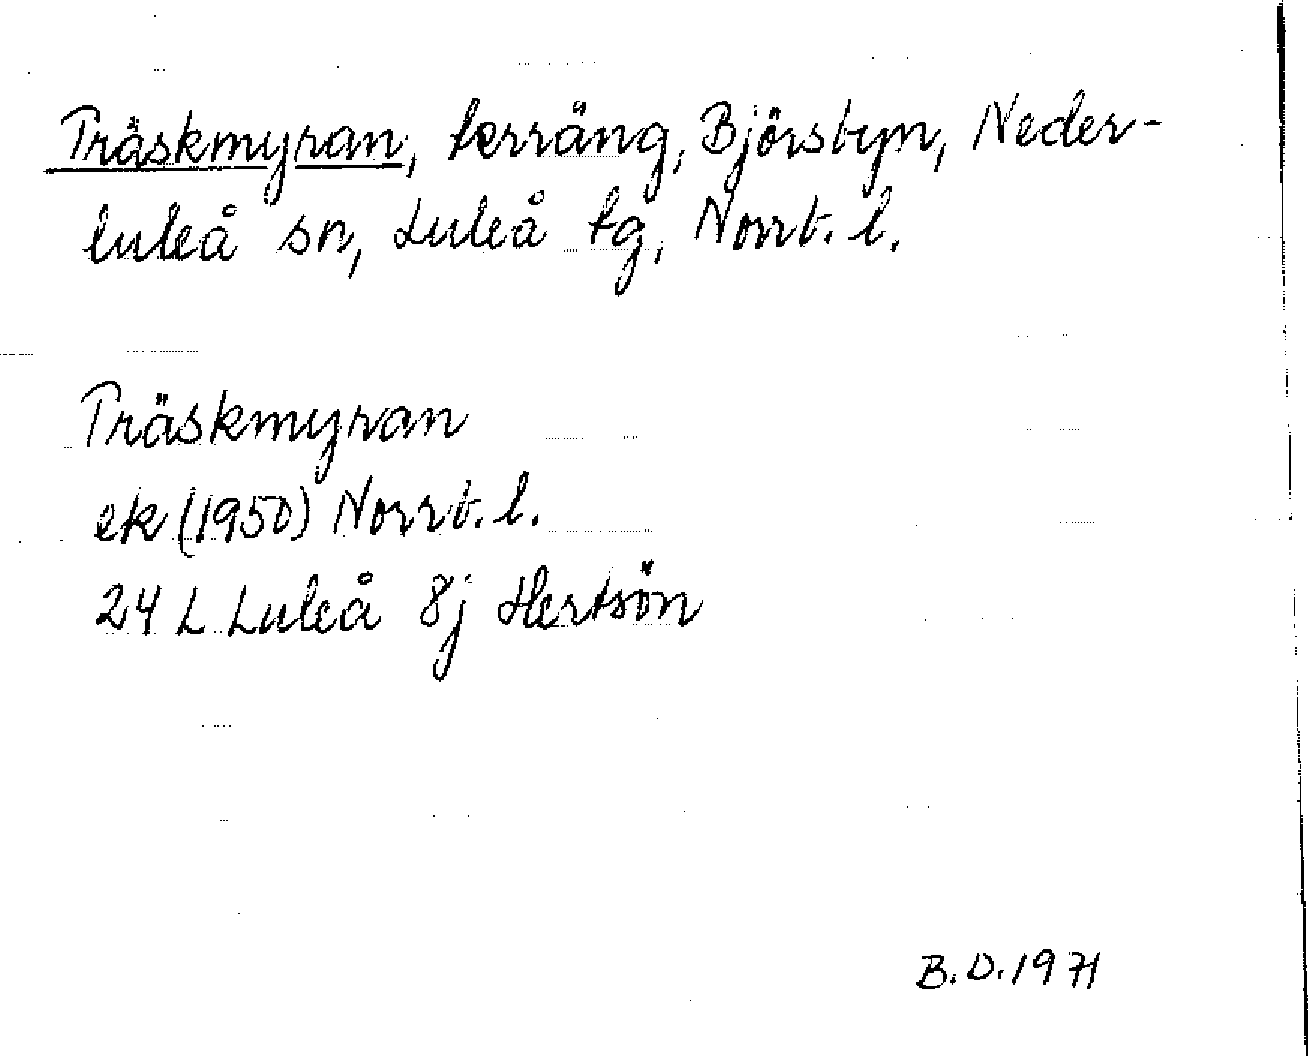 Träskmyran, terräng, Björsbyn, Neder-
luleå sn, Luleå tg, Norrb. l.
Träskmyran
ek (1950) Norrb. l.
24 L Luleå 8j Hertsön
B.D. 1971